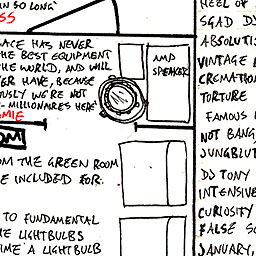 IN SO LONG'
SS
ACE HAS NEVER
THE BEST EQUIPMENT
THE WORLD, AND WILL
ER HAVE, BECAUSE
OUSLY WE'RE NOT
- MILLIONAIRES HERE'
OMIE
AMP
SPEAKER
OOM
OM THE GREEN ROOM
E INCLUDED FOR:
TO FUNDAMENTAL
E LIGHTBULBS
IME A LIGHTBULB
HEEL OF
SGAD DJ
ABSOLUTI
VINTAGE E
CREMATION
TORTURE
FAMOUS I
NOT BANG
JUNGBLUT
DJ TONY
INTENSIVE
CURIOSITY
FALSE SO
JANUARY,